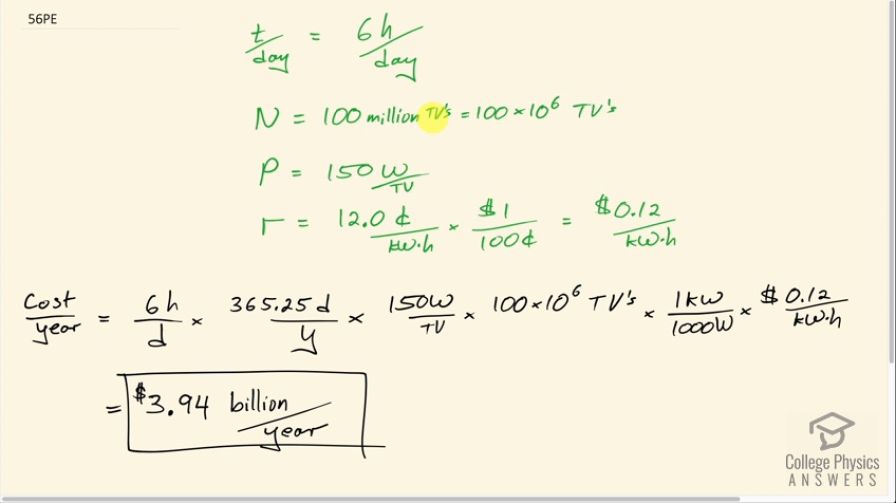 56PE
t/day = 6h/day
N = 100 million TV's = 100 × 10⁶ TV's
P = 150 W/TV
r = 12.0 ¢/kW·h × $1/100¢ = $0.12/kW·h
Cost/year = 6h/d × 365.25 d/y × 150W/TV × 100 × 10⁶ TV's × 1kW/1000W × $0.12/kW·h
= $3.94 billion/year
College Physics
ANSWERS